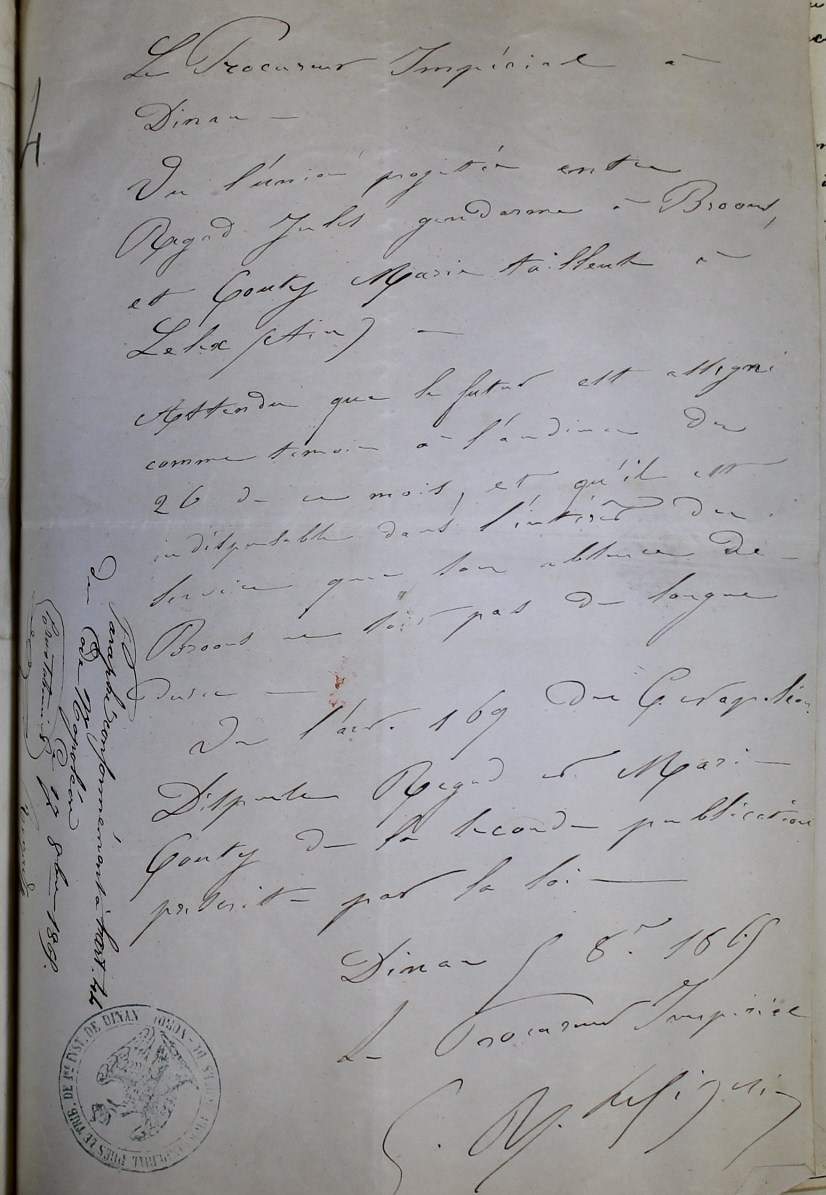 Le Procureur Impérial à
Dinan —
Vu l'union projetée entre
Regad Jules gendarme à Broons,
et Gouty Marie tailleuse à
Lelex (Ain) —
Attendu que le futur est assigné
comme témoin à l'audience du
26 de ce mois, et qu'il est
indispensable dans l'intérêt du
service que son absence de
Broons ne soit pas de longue
durée —
Vu l'art. 169 du C. Napoléon
Dispense Regad et Marie
Gouty de la seconde publication
prescrite par la loi —
Dinan 5 8.re 1865
Le Procureur Impérial
Paraphé conformément à l'art. 44
du Code Napoléon
PRÈS LE TRIB. DE 1re INST. DE DINAN